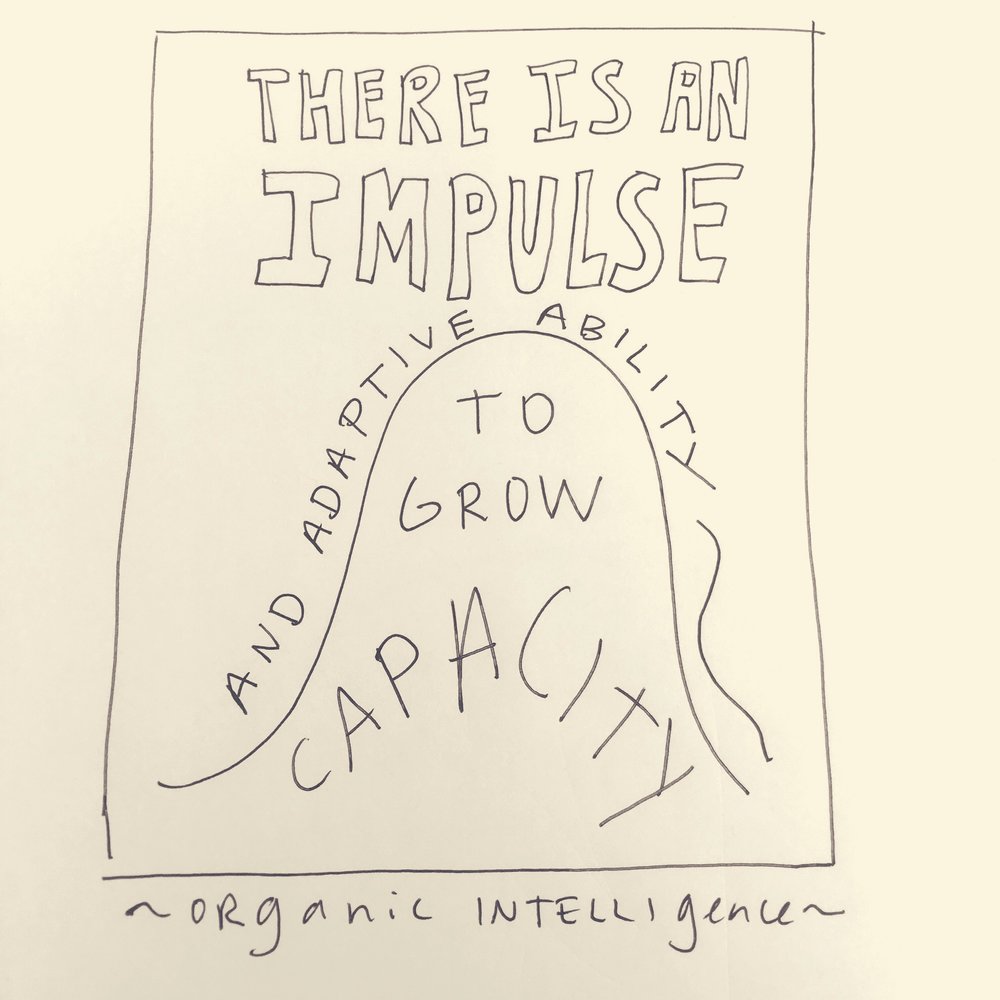 THERE IS AN
IMPULSE
AND ADAPTIVE ABILITY
TO
GROW
CAPACITY
~ORganic INTELLIgence~